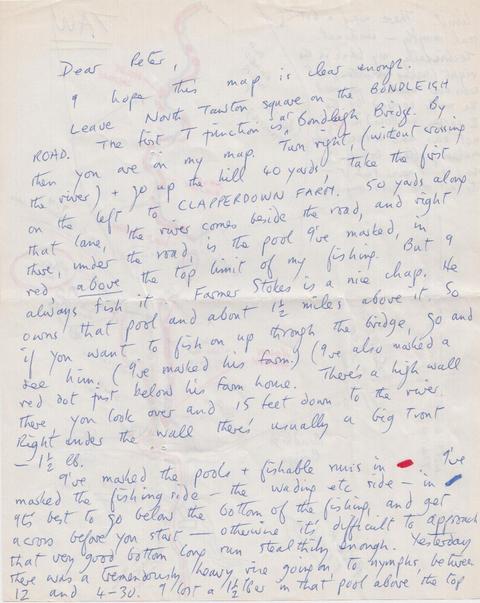 Dear Peter,
I hope this map is clear enough.
Leave North Tawton square on the BONDLEIGH
ROAD. The first T junction is at Bondleigh Bridge. By
then you are on my map. Turn right, (without crossing
the river) + go up the hill 40 yards, take the first
on the left to CLAPPERDOWN FARM. 50 yards along
that lane, the river comes beside the road, and right
there, under the road, is the pool I've marked, in
red above the top limit of my fishing. But I
always fish it. Farmer Stokes is a nice chap. He
owns that pool and about 1½ miles above it. So
if you want to fish on up through the bridge, go and
see him. (I've marked his farm.) (I've also marked a
red dot just below his farm house. There's a high wall
there you look over and 15 feet down to the river.
Right under the wall there's usually a big trout
— 1½ lb.
I've marked the pools + fishable runs in I've
marked the fishing side — the wading etc side — in
It's best to go below the bottom of the fishing, and get
across before you start — otherwise it's difficult to approach
that very good bottom long run stealthily enough. Yesterday
there was a tremendously heavy rise going on to nymphs, between
12 and 4-30. I lost a 1½ lber in that pool above the top